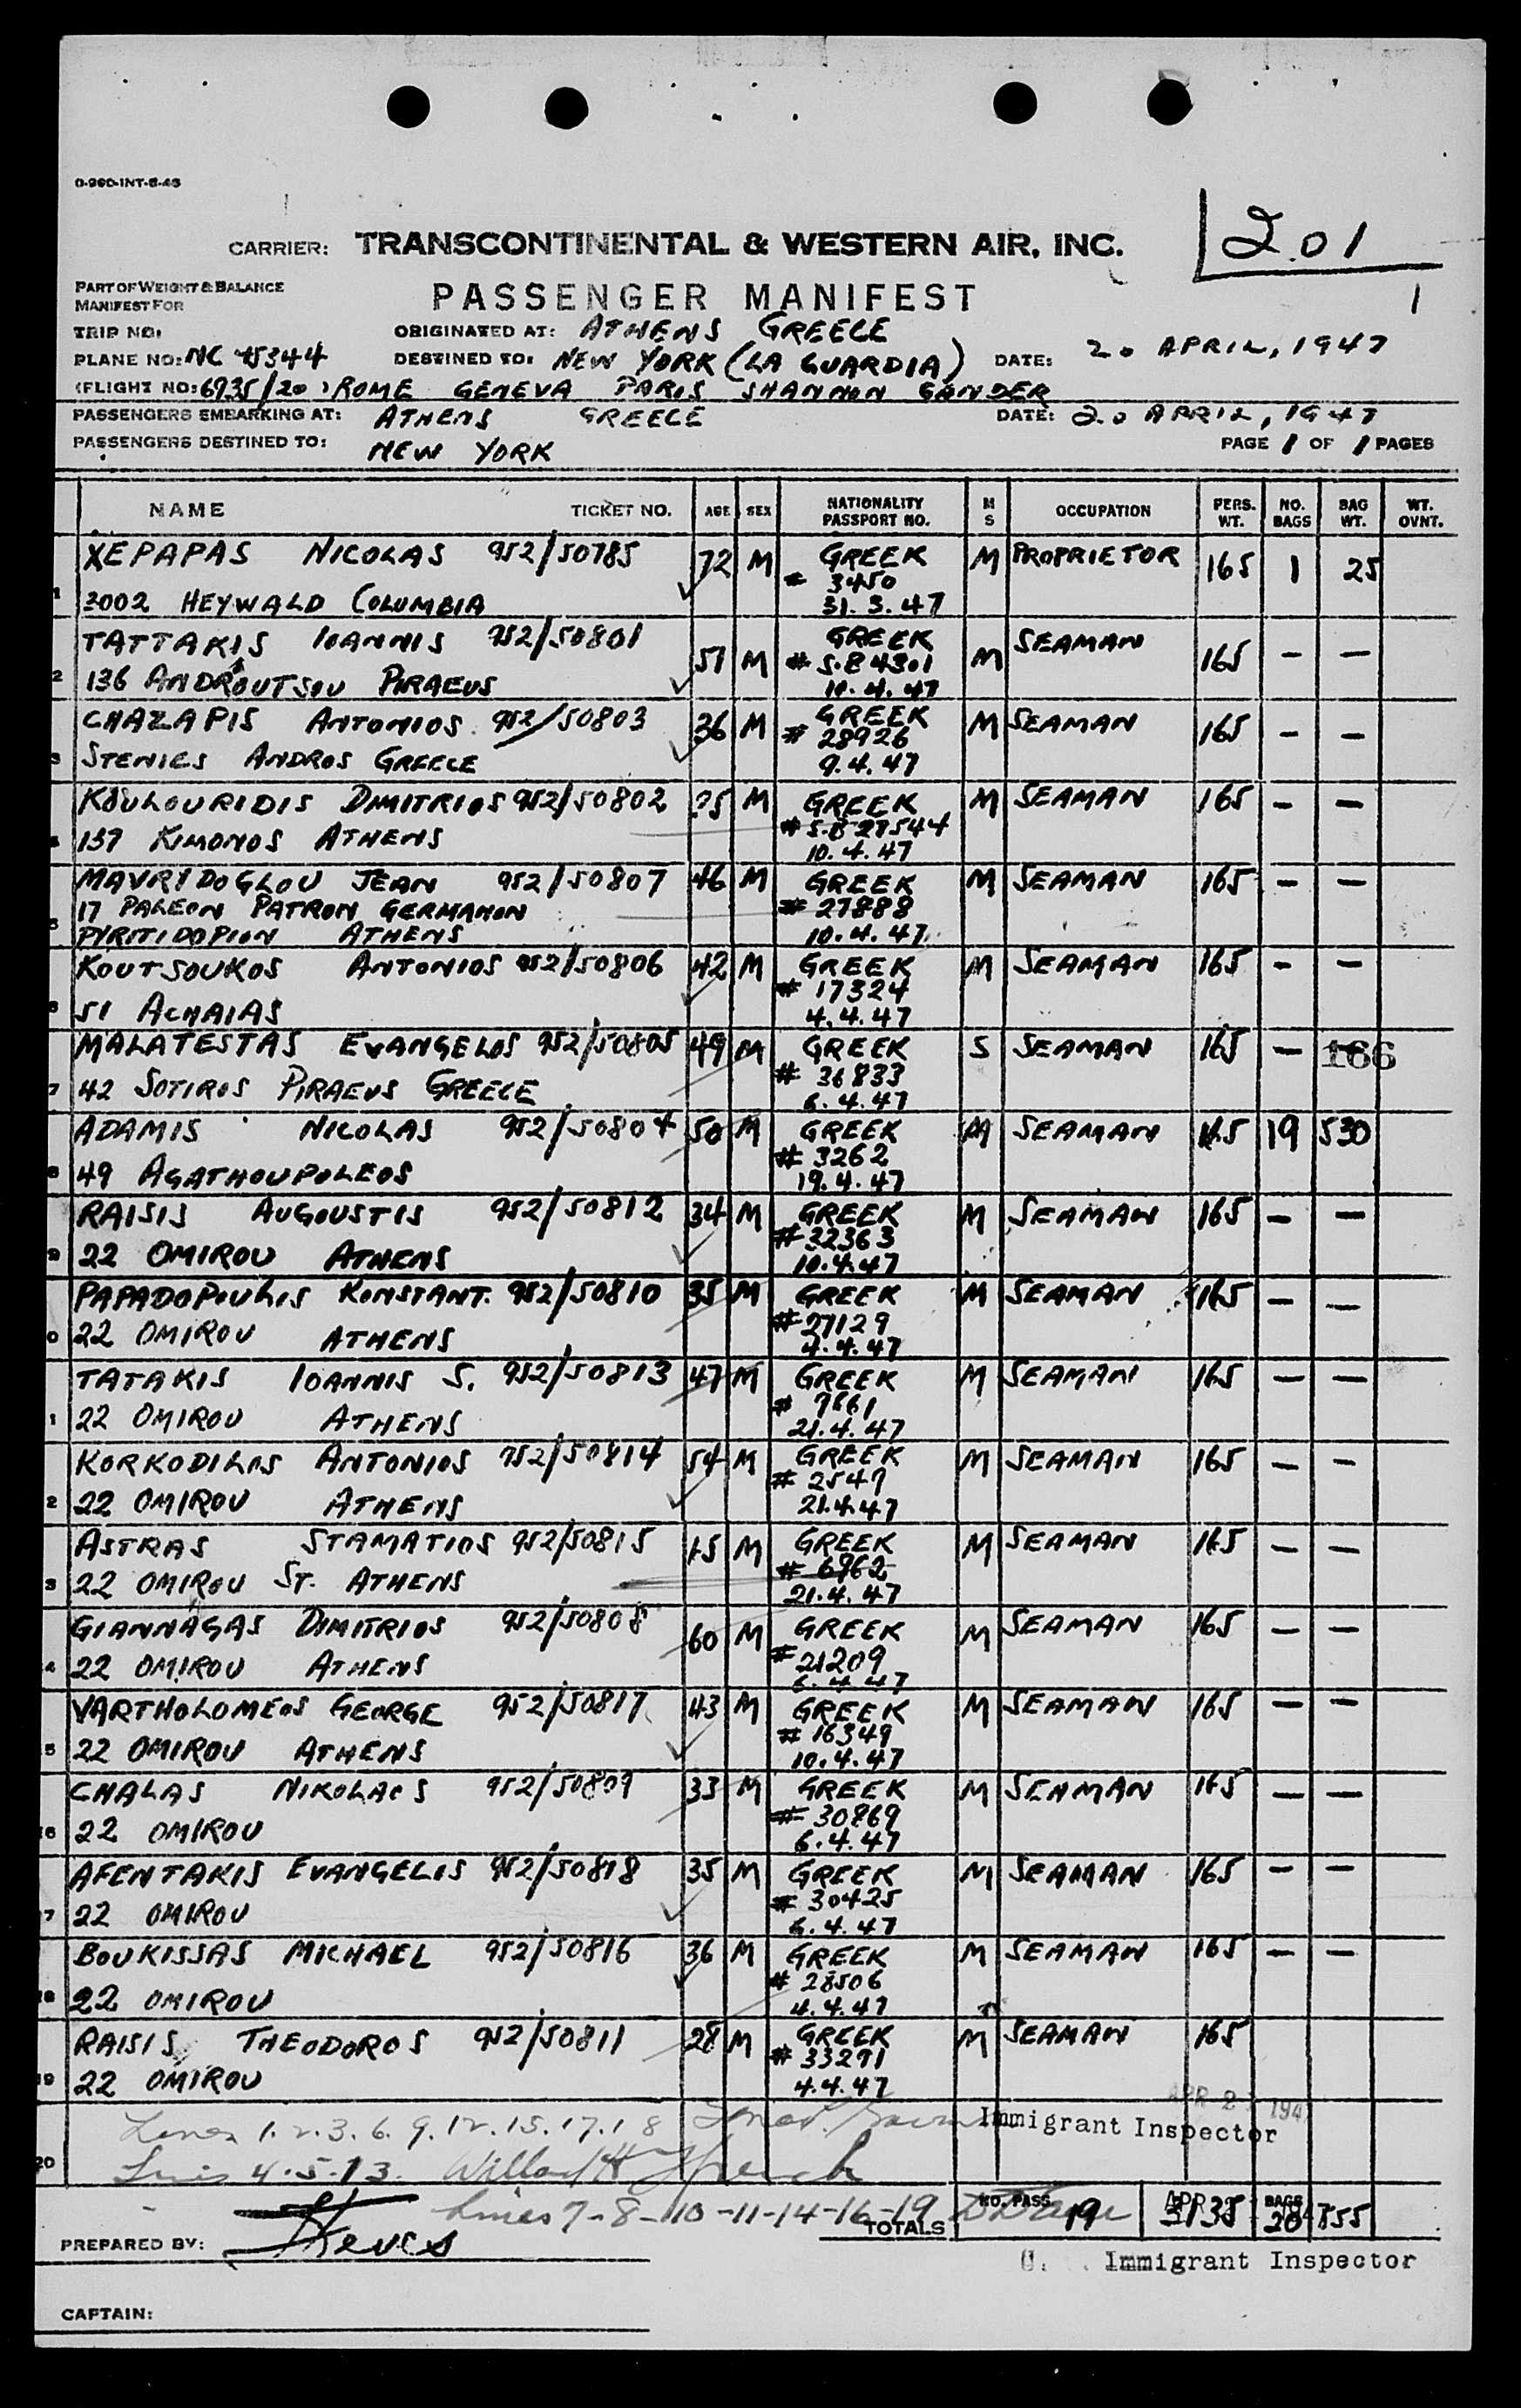 0-990-INT-6-46
201
1
CARRIER: TRANSCONTINENTAL & WESTERN AIR, INC.
PART OF WEIGHT & BALANCE
MANIFEST FOR
PASSENGER MANIFEST
TRIP NO: ORIGINATED AT: ATHENS GREECE
PLANE NO: NC 45344 DESTINED TO: NEW YORK (LA GUARDIA) DATE: 20 APRIL, 1947
(FLIGHT NO: 6935/20) ROME GENEVA PARIS SHANNON GANDER
PASSENGERS EMBARKING AT: ATHENS GREECE DATE: 20 APRIL, 1947
PASSENGERS DESTINED TO: NEW YORK PAGE 1 OF 1 PAGES
NAME TICKET NO. AGE SEX NATIONALITY PASSPORT NO. M S OCCUPATION PERS. WT. NO. BAGS BAG WT. WT. OVNT.
XEPAPAS NICOLAS 952/50785 72 M GREEK M PROPRIETOR 165 1 25
# 3450
1 3002 HEYWALD COLUMBIA 31.3.47
TATTAKIS IOANNIS 952/50801 51 M GREEK M SEAMAN 165 — —
# S.B 4301
2 136 ANDROUTSOU PIRAEUS 10.4.47
CHAZAPIS ANTONIOS 952/50803 36 M GREEK M SEAMAN 165 — —
# 28926
3 STENIES ANDROS GREECE 9.4.47
KOULOURIDIS DIMITRIOS 952/50802 M GREEK M SEAMAN 165 — —
# S.B 27544
137 KIMONOS ATHENS 10.4.47
MAVRIDOGLOU JEAN 952/50807 46 M GREEK M SEAMAN 165 — —
17 PALEON PATRON GERMANON # 27888
5 PYRITIDOPION ATHENS 10.4.47
KOUTSOUKOS ANTONIOS 952/50806 42 M GREEK M SEAMAN 165 — —
# 17324
6 51 ACHAIAS 4.4.47
MALATESTAS EVANGELOS 952/50805 49 M GREEK S SEAMAN 165 — 166
# 36833
7 42 SOTIROS PIRAEUS GREECE 6.4.47
ADAMIS NICOLAS 952/50804 50 M GREEK M SEAMAN 165 19 530
# 3262
8 49 AGATHOUPOLEOS 19.4.47
RAISIS AUGOUSTIS 952/50812 34 M GREEK M SEAMAN 165 — —
# 32363
9 22 OMIROU ATHENS 10.4.47
PAPADOPOULIS KONSTANT. 952/50810 35 M GREEK M SEAMAN 165 — —
# 27129
0 22 OMIROU ATHENS 4.4.47
TATAKIS IOANNIS S. 952/50813 47 M GREEK M SEAMAN 165 — —
# 7661
1 22 OMIROU ATHENS 21.4.47
KORKODILOS ANTONIOS 952/50814 54 M GREEK M SEAMAN 165 — —
# 2549
2 22 OMIROU ATHENS 21.4.47
ASTRAS STAMATIOS 952/50815 M GREEK M SEAMAN 165 — —
# 6962
3 22 OMIROU ST. ATHENS 21.4.47
GIANNAGAS DIMITRIOS 952/50808 60 M GREEK M SEAMAN 165 — —
# 21209
4 22 OMIROU ATHENS 6.4.47
VARTHOLOMEOS GEORGE 952/50817 43 M GREEK M SEAMAN 165 — —
# 16349
5 22 OMIROU ATHENS 10.4.47
CHALAS NIKOLAOS 952/50809 33 M GREEK M SEAMAN 165 — —
# 30869
16 22 OMIROU 6.4.47
AFENTAKIS EVANGELIS 952/50818 35 M GREEK M SEAMAN 165 — —
# 30425
17 22 OMIROU 6.4.47
BOUKISSAS MICHAEL 952/50816 36 M GREEK M SEAMAN 165 — —
# 28506
18 22 OMIROU 4.4.47
RAISIS THEODOROS 952/50811 28 M GREEK M SEAMAN 165
# 33291
19 22 OMIROU 4.4.47
APR 2 194
Lines 1.2.3.6.9.12.15.17.18 Immigrant Inspector
20 Lines 4.5.13.
Lines 7-8-10-11-14-16-19 TOTALS NO. PASS. 19 APR 3135 BAGS 20 555
PREPARED BY:
Immigrant Inspector
CAPTAIN: